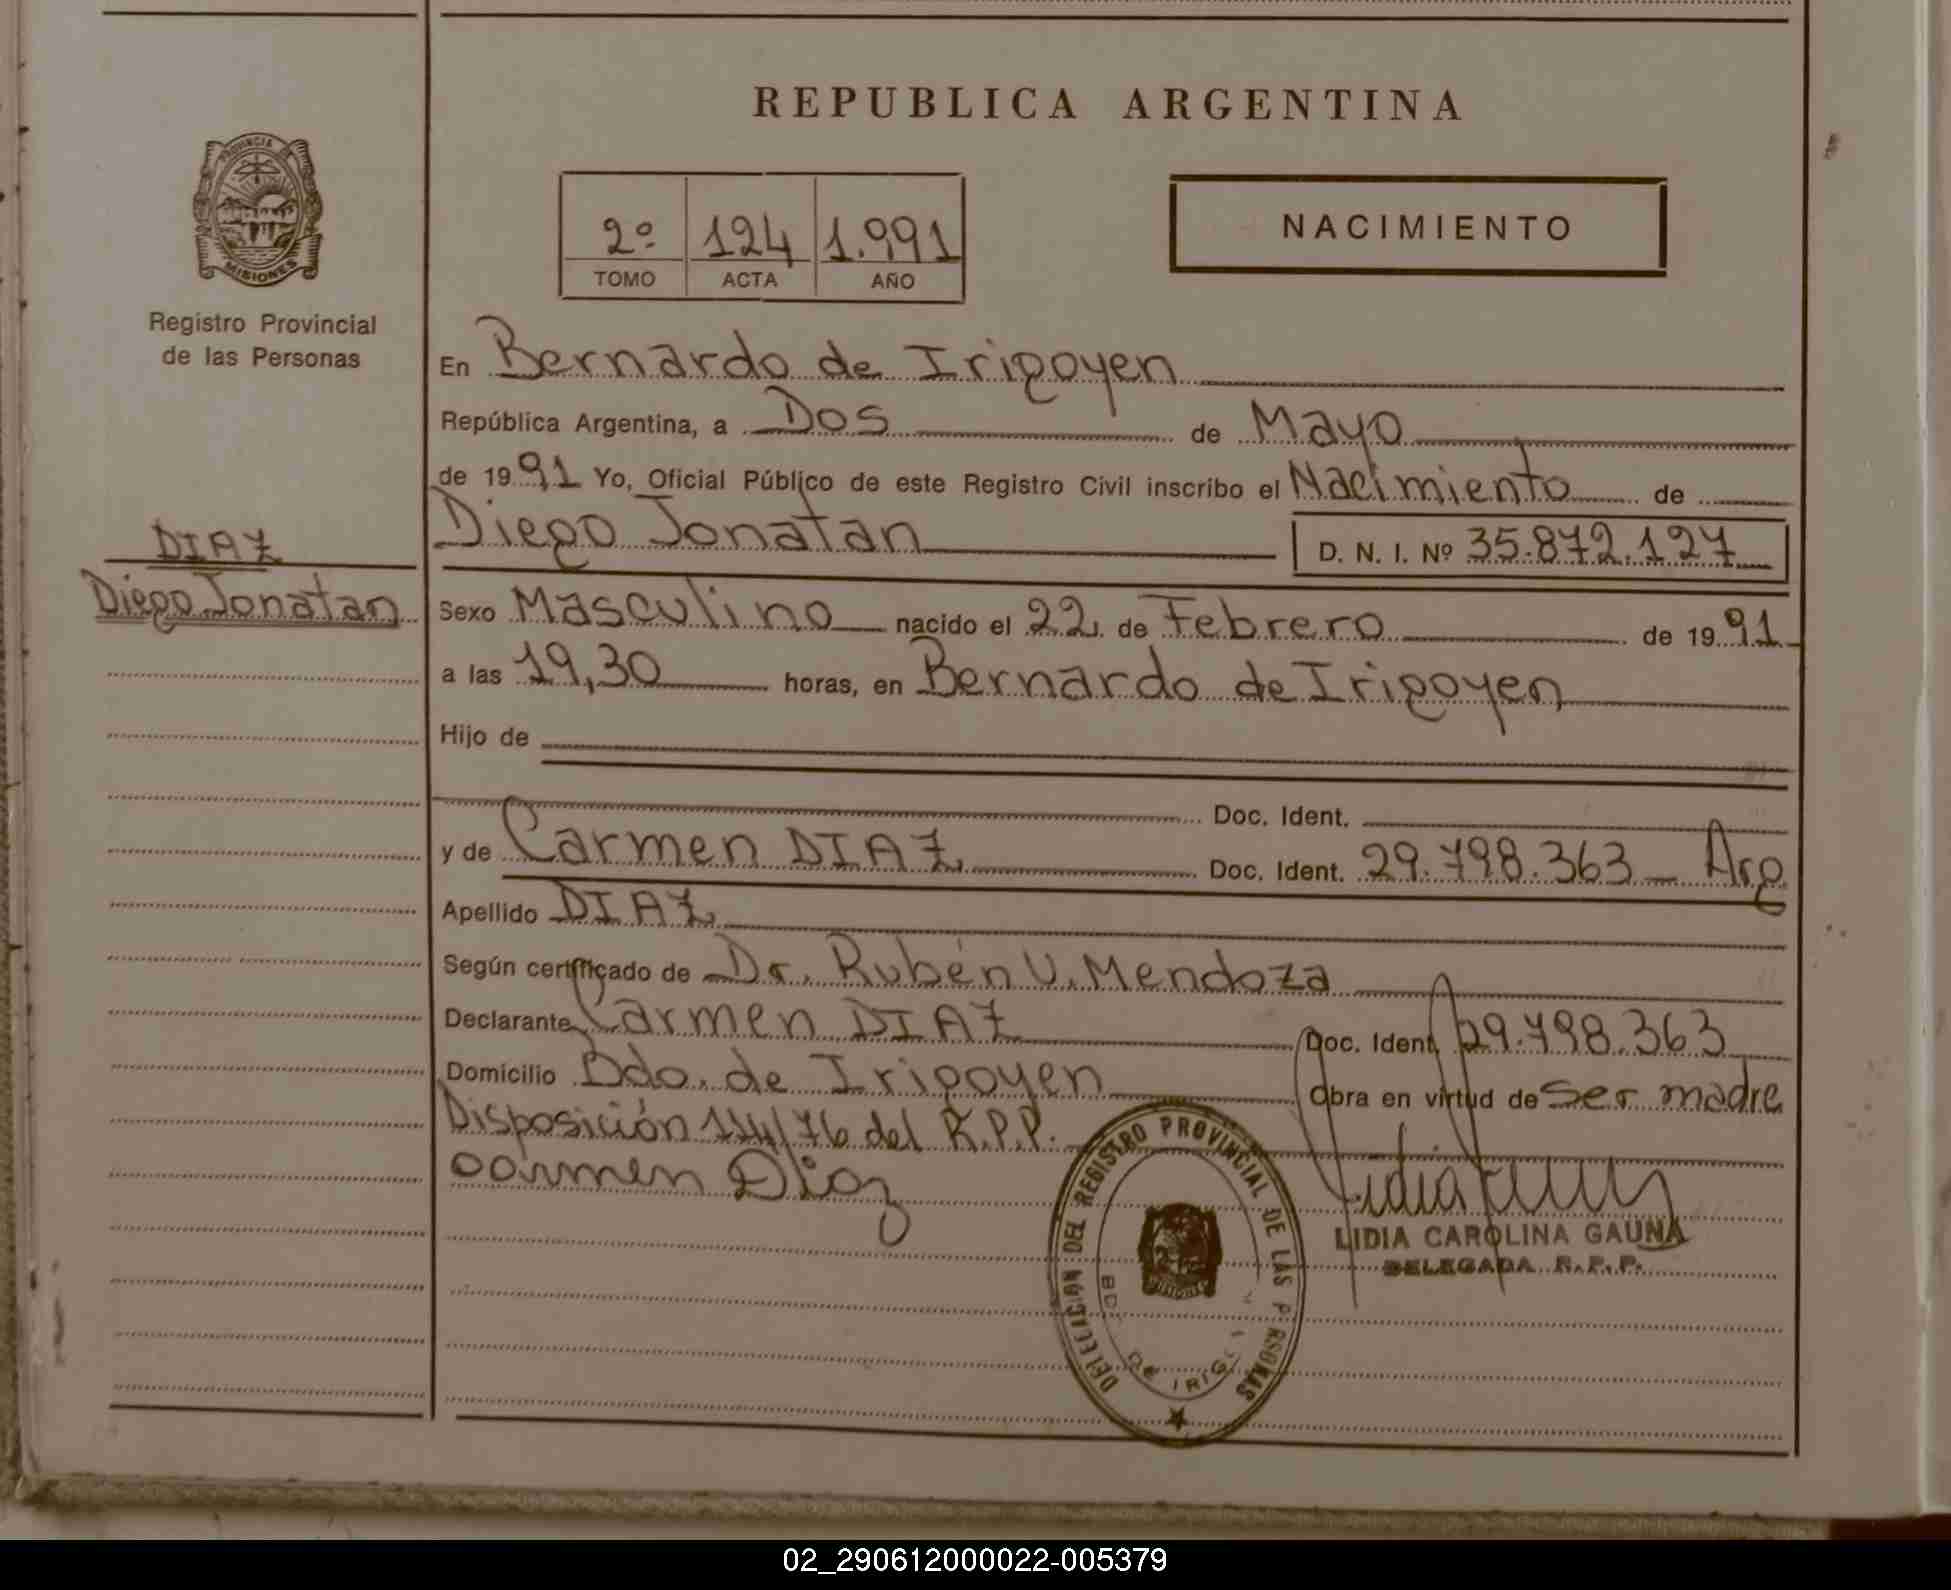 REPUBLICA ARGENTINA
PROVINCIA DE MISIONES
Registro Provincial
de las Personas
2º 124 1.991
TOMO ACTA AÑO
NACIMIENTO
En Bernardo de Irigoyen
República Argentina, a Dos de Mayo
de 1991 Yo, Oficial Público de este Registro Civil inscribo el Nacimiento de
Diego Jonatan D. N. I. Nº 35.872.127
DIAZ
Diego Jonatan
Sexo Masculino nacido el 22 de Febrero de 1991
a las 19,30 horas, en Bernardo de Irigoyen
Hijo de
Doc. Ident.
y de Carmen DIAZ Doc. Ident. 29.798.363 Arg.
Apellido DIAZ
Según certificado de Dr. Rubén V. Mendoza
Declarante Carmen DIAZ Doc. Ident. 29.798.363
Domicilio Bdo. de Irigoyen Obra en virtud de ser madre
Disposición 114/76 del R.P.P.
Carmen Diaz
LIDIA CAROLINA GAUNA
DELEGADA R.P.P.
DELEGACION DEL REGISTRO PROVINCIAL DE LAS PERSONAS
02_290612000022-005379